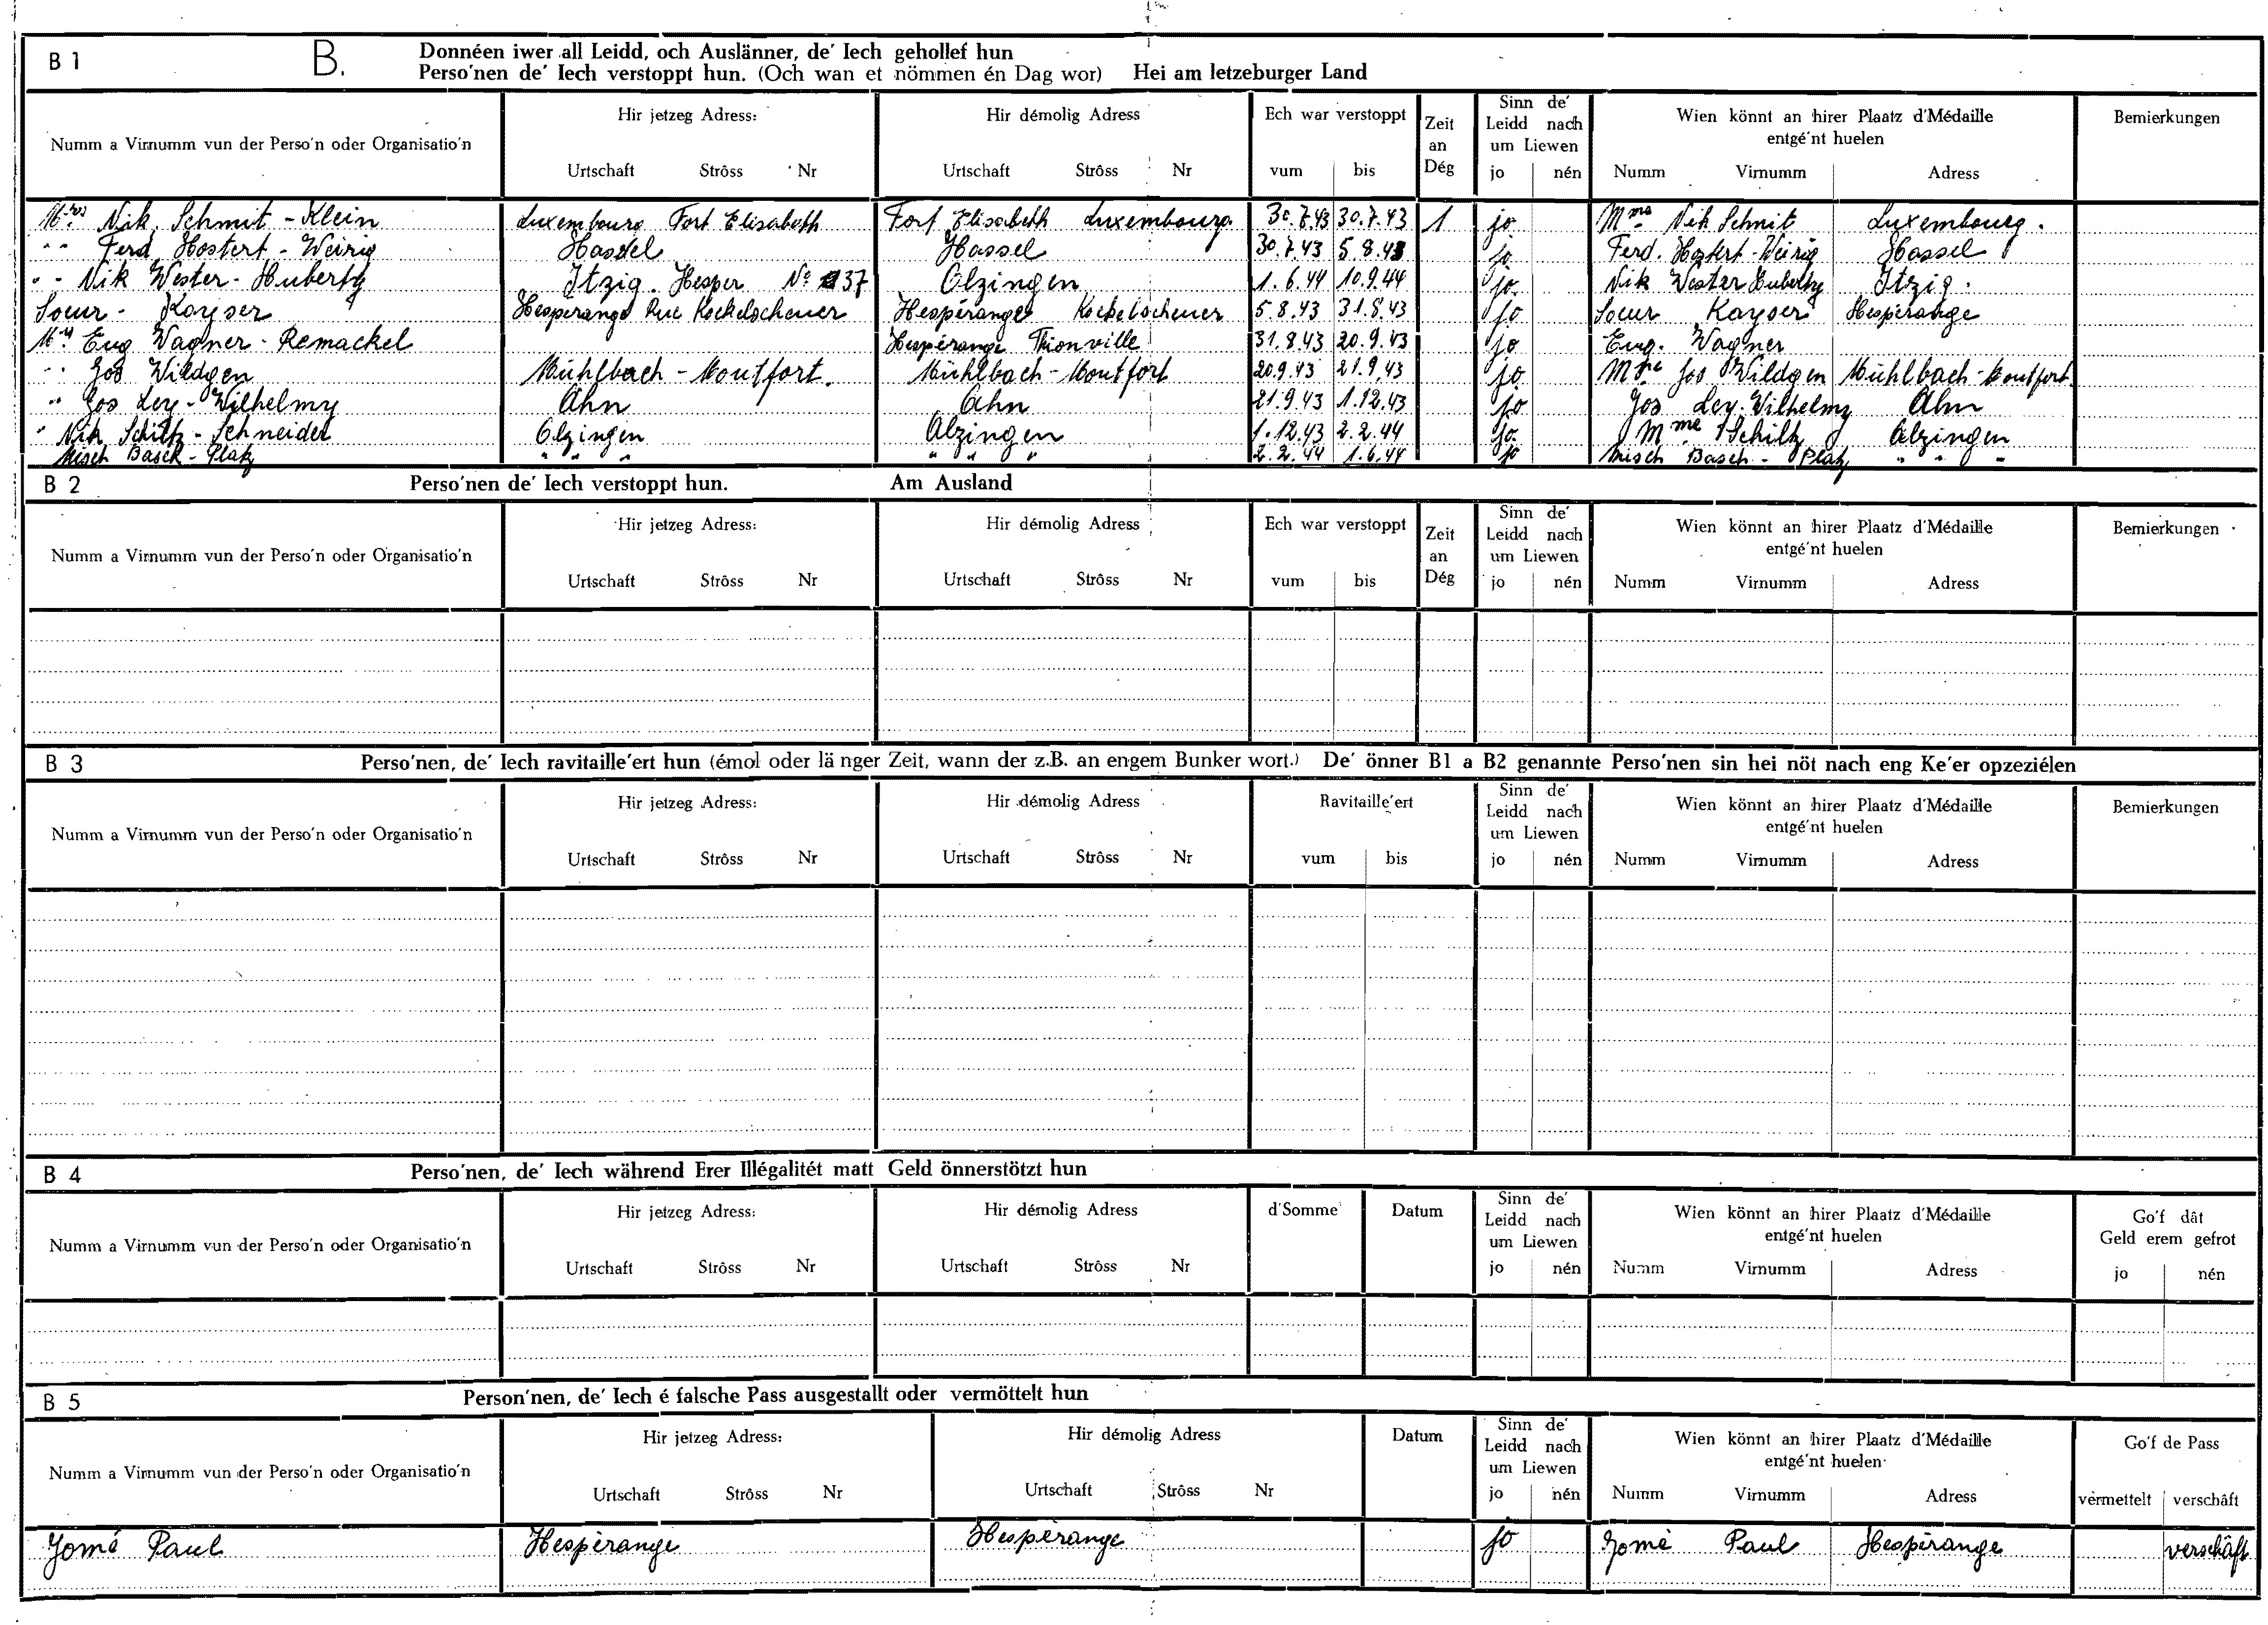 B 1 B. Donnéen iwer all Leidd, och Auslänner, de' Iech gehollef hun
Perso'nen de' Iech verstoppt hun. (Och wan et nömmen én Dag wor) Hei am letzeburger Land
Numm a Virnumm vun der Perso'n oder Organisatio'n
Hir jetzeg Adress:
Urtschaft Strôss Nr
Hir démolig Adress
Urtschaft Strôss Nr
Ech war verstoppt
vum bis
Zeit
an
Dég
Sinn de'
Leidd nach
um Liewen
jo nén
Wien könnt an hirer Plaatz d'Médaille
entgé'nt huelen
Numm Virnumm Adress
Bemierkungen
Nik. Schmit - Klein Luxembourg Fort Elisabeth Fort Elisabeth Luxembourg 30.7.43 30.7.43 1 jo Mme Nik Schmit Luxembourg.
" Ferd. Hostert - Weirig Hassel Hassel 30.7.43 5.8.43 jo Ferd. Hostert - Weirig Hassel
" Nik Wester - Huberty Itzig. Hesper No 37 Alzingen 1.6.44 10.9.44 jo Nik Wester Huberty Itzig.
Soeur - Kayser Hesperange Rue Kockelscheuer Hespérange Kockelscheuer 5.8.43 31.8.43 jo Soeur Kayser Hespérange
Mr Eug Wagner - Remackel Hespérange Thionville 31.8.43 20.9.43 jo Eug. Wagner
" Jos Wildgen Mühlbach - Moutfort. Mühlbach - Moutfort 20.9.43 21.9.43 jo Mme Jos Wildgen Mühlbach - Moutfort
" Jos Ley - Wilhelmy Ahn Ahn 21.9.43 1.12.43 jo Jos Ley - Wilhelmy Ahn
" Nik Schiltz - Schneider Alzingen Alzingen 1.12.43 2.2.44 jo Mme Schiltz Alzingen
Misch Basch - Platz " " " " " " 2.2.44 1.6.44 jo Misch Basch - Platz " " "
B 2 Perso'nen de' Iech verstoppt hun. Am Ausland
Numm a Virnumm vun der Perso'n oder Organisatio'n
Hir jetzeg Adress:
Urtschaft Strôss Nr
Hir démolig Adress
Urtschaft Strôss Nr
Ech war verstoppt
vum bis
Zeit
an
Dég
Sinn de'
Leidd nach
um Liewen
jo nén
Wien könnt an hirer Plaatz d'Médaille
entgé'nt huelen
Numm Virnumm Adress
Bemierkungen
B 3 Perso'nen, de' Iech ravitaille'ert hun (émol oder länger Zeit, wann der z.B. an engem Bunker wort.) De' önner B1 a B2 genannte Perso'nen sin hei nöt nach eng Ke'er opzeziélen
Numm a Virnumm vun der Perso'n oder Organisatio'n
Hir jetzeg Adress:
Urtschaft Strôss Nr
Hir démolig Adress
Urtschaft Strôss Nr
Ravitaille'ert
vum bis
Sinn de'
Leidd nach
um Liewen
jo nén
Wien könnt an hirer Plaatz d'Médaille
entgé'nt huelen
Numm Virnumm Adress
Bemierkungen
B 4 Perso'nen, de' Iech während Erer Illégalitét matt Geld önnerstötzt hun
Numm a Virnumm vun der Perso'n oder Organisatio'n
Hir jetzeg Adress:
Urtschaft Strôss Nr
Hir démolig Adress
Urtschaft Strôss Nr
d'Somme
Datum
Sinn de'
Leidd nach
um Liewen
jo nén
Wien könnt an hirer Plaatz d'Médaille
entgé'nt huelen
Numm Virnumm Adress
Go'f dât
Geld erem gefrot
jo nén
B 5 Person'nen, de' Iech é falsche Pass ausgestallt oder vermöttelt hun
Numm a Virnumm vun der Perso'n oder Organisatio'n
Hir jetzeg Adress:
Urtschaft Strôss Nr
Hir démolig Adress
Urtschaft Strôss Nr
Datum
Sinn de'
Leidd nach
um Liewen
jo nén
Wien könnt an hirer Plaatz d'Médaille
entgé'nt huelen
Numm Virnumm Adress
Go'f de Pass
vermettelt verschâft
Jomé Paul Hespérange Hespérange jo Jomé Paul Hespérange verschâft